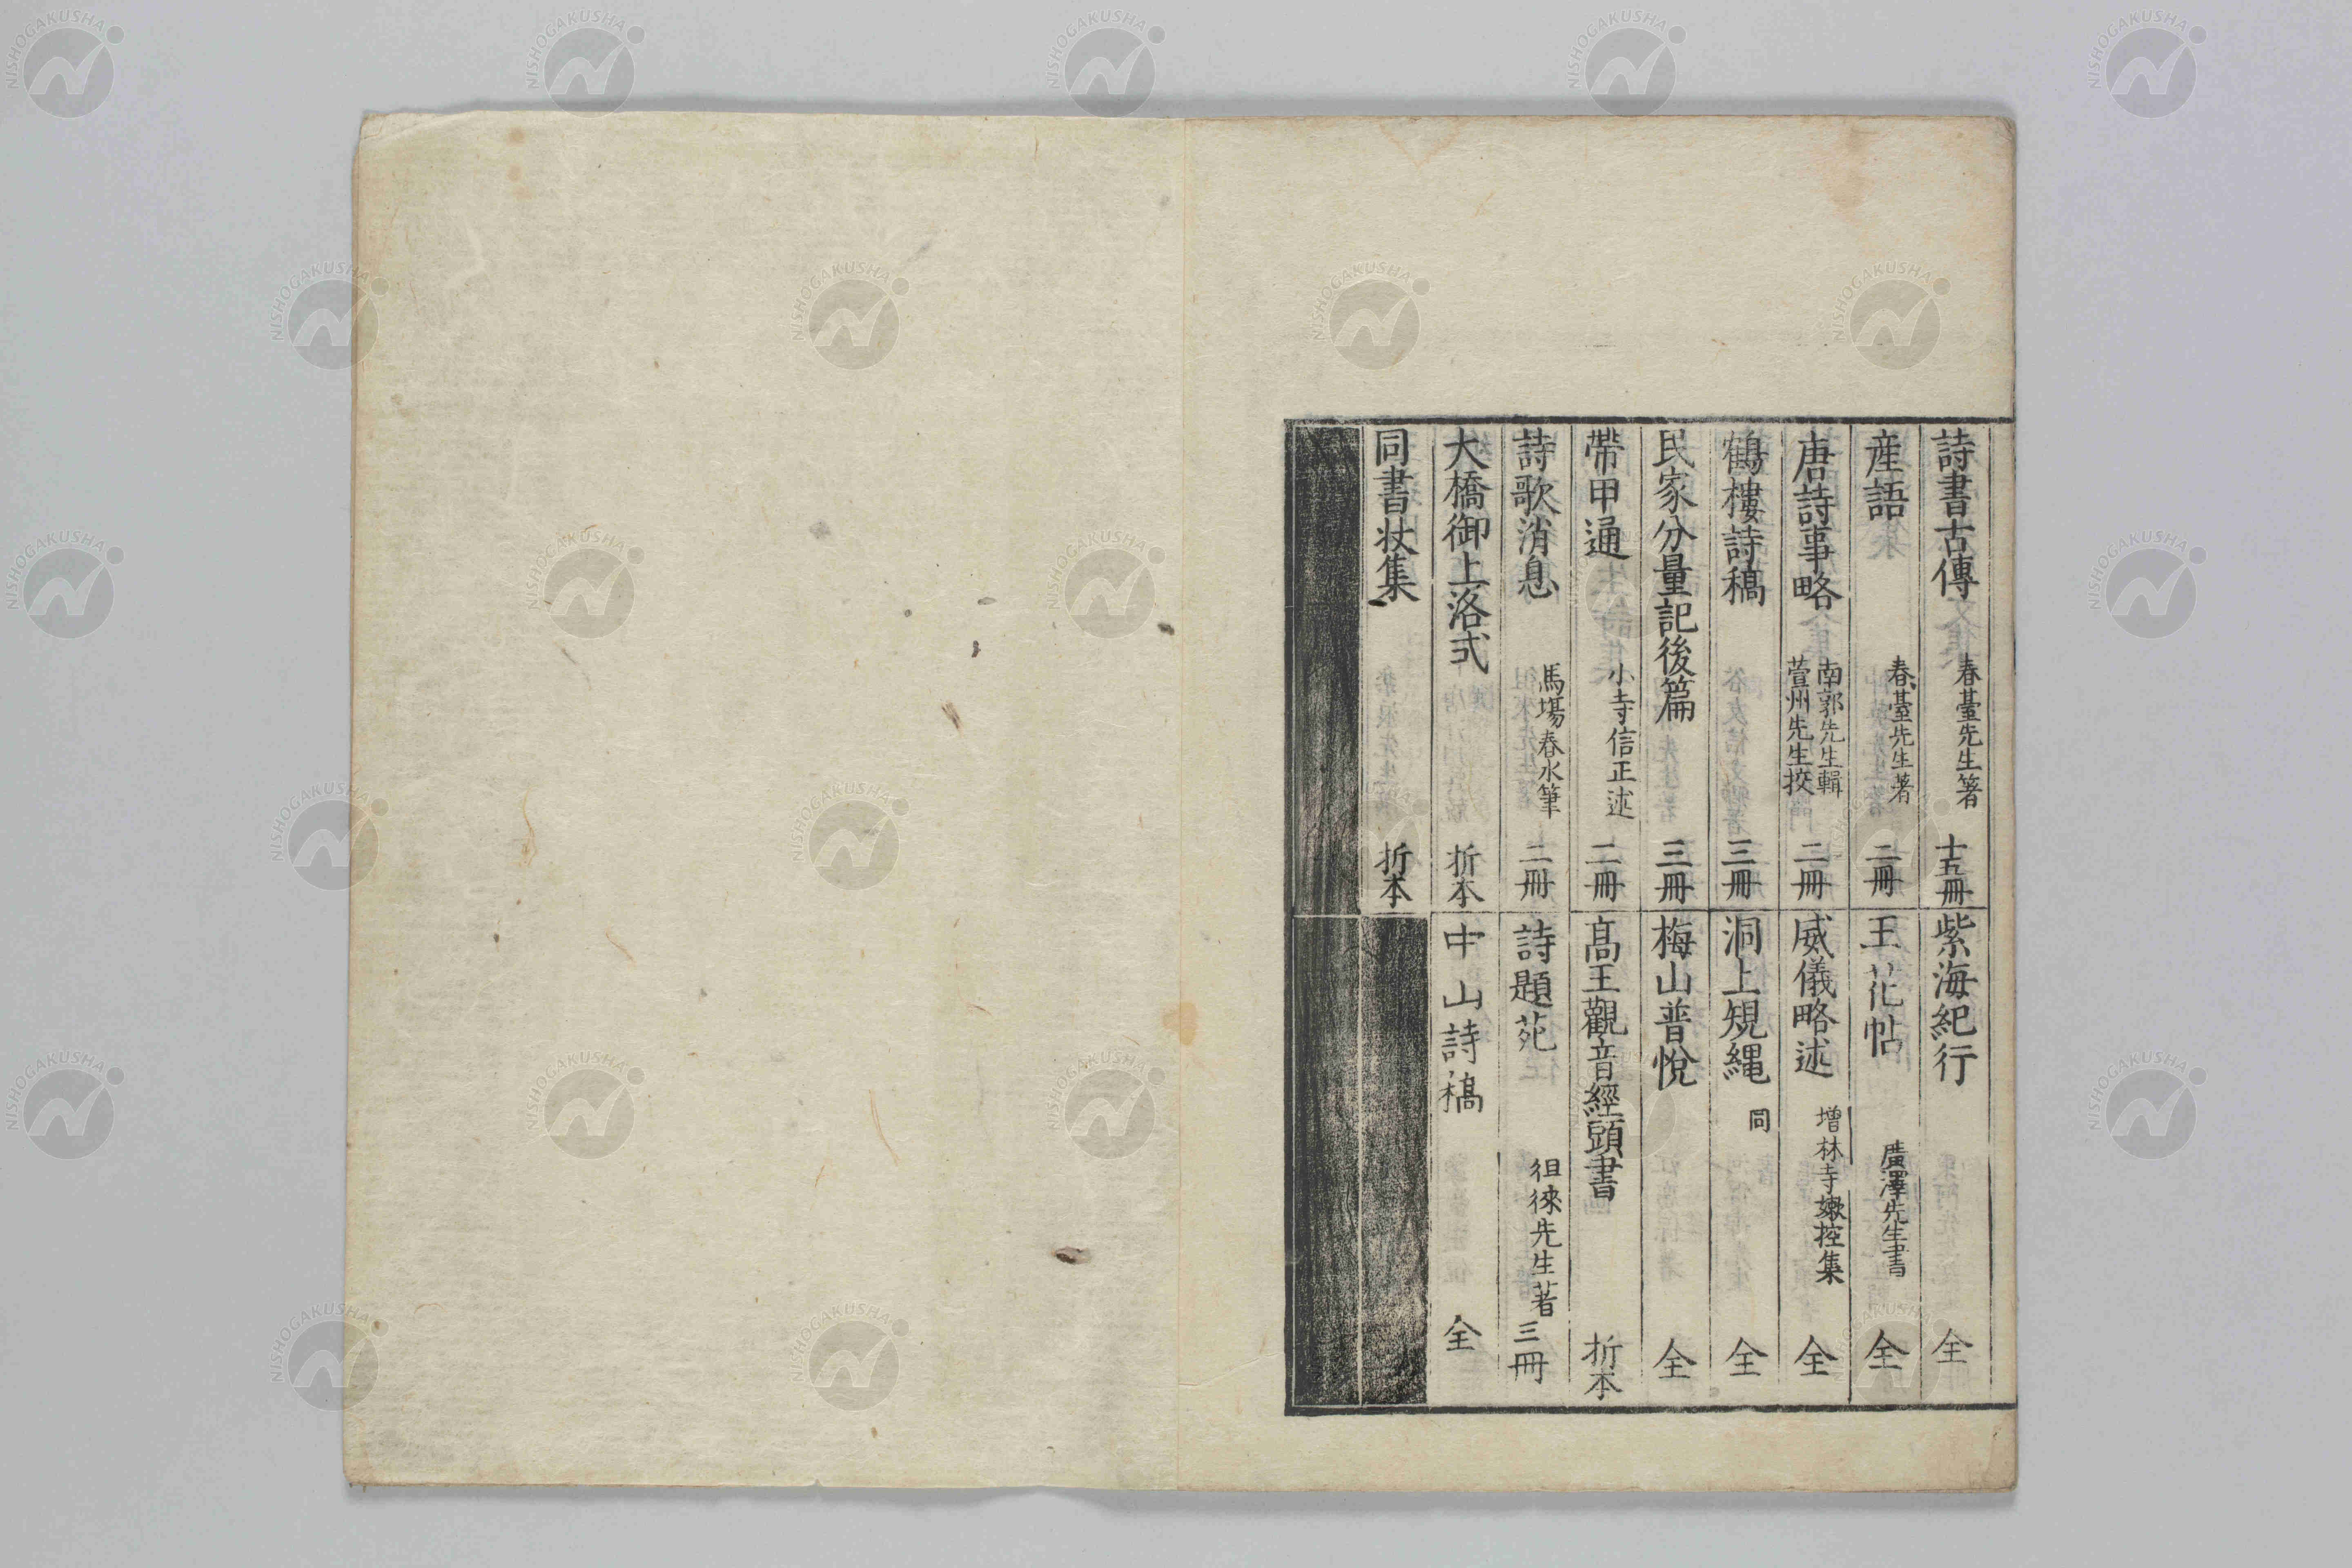 詩書古傳 春臺先生箸 十五冊
産語 春臺先生著 二冊
唐詩事略 南郭先生輯 萱州先生挍 二冊
鶴樓詩稿 三冊
民家分量記後篇 三冊
帶甲通 小寺信正述 二冊
詩歌消息 馬場春水筆 二冊
大橋御上洛式 折本
同書状集 折本
紫海紀行 全
玉花帖 廣澤先生書 全
威儀略述 増林寺嫰控集 全
洞上規縄 同 全
梅山普悅 全
髙王觀音經頭書 折本
詩題苑 徂徠先生著 三冊
中山詩稿 全
NISHOGAKUSHA